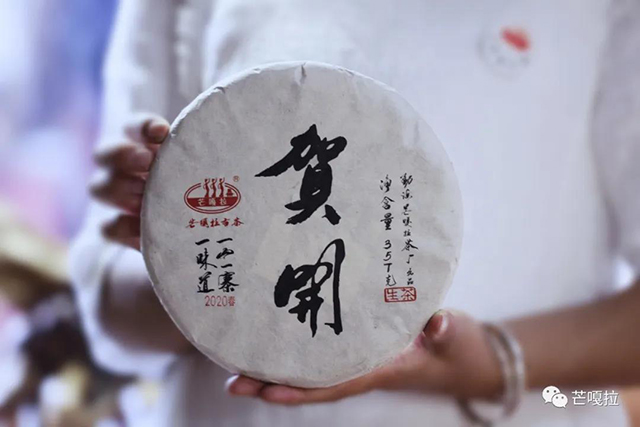 賀開
芒嘎拉
®
芒嘎拉古茶
一山一寨
一味道
2020春
勐海芒嘎拉茶厂出品
净含量357克
生茶
芒嘎拉